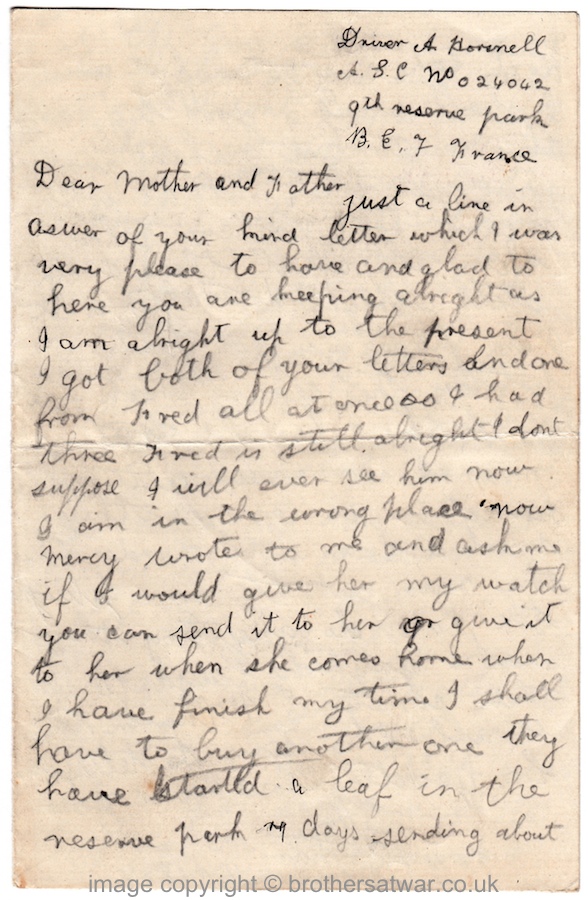 Driver A Horsnell
A. S. C No 024042
9th reserve park
B. E. F France
Dear Mother and Father
just a line in
aswer of your kind letter which I was
very please to have and glad to
here you are keeping alright as
I am alright up to the present
I got both of your letters and one
from Fred all at once so I had
three Fred is still alright I dont
suppose I will ever see him now
I am in the wrong place now
Mercy wrote to me and ask me
if I would give her my watch
you can send it to her or give it
to her when she comes home when
I have finish my time I shall
have to buy another one they
have started a leaf in the
reserve park days sending about
image copyright © brothersatwar.co.uk